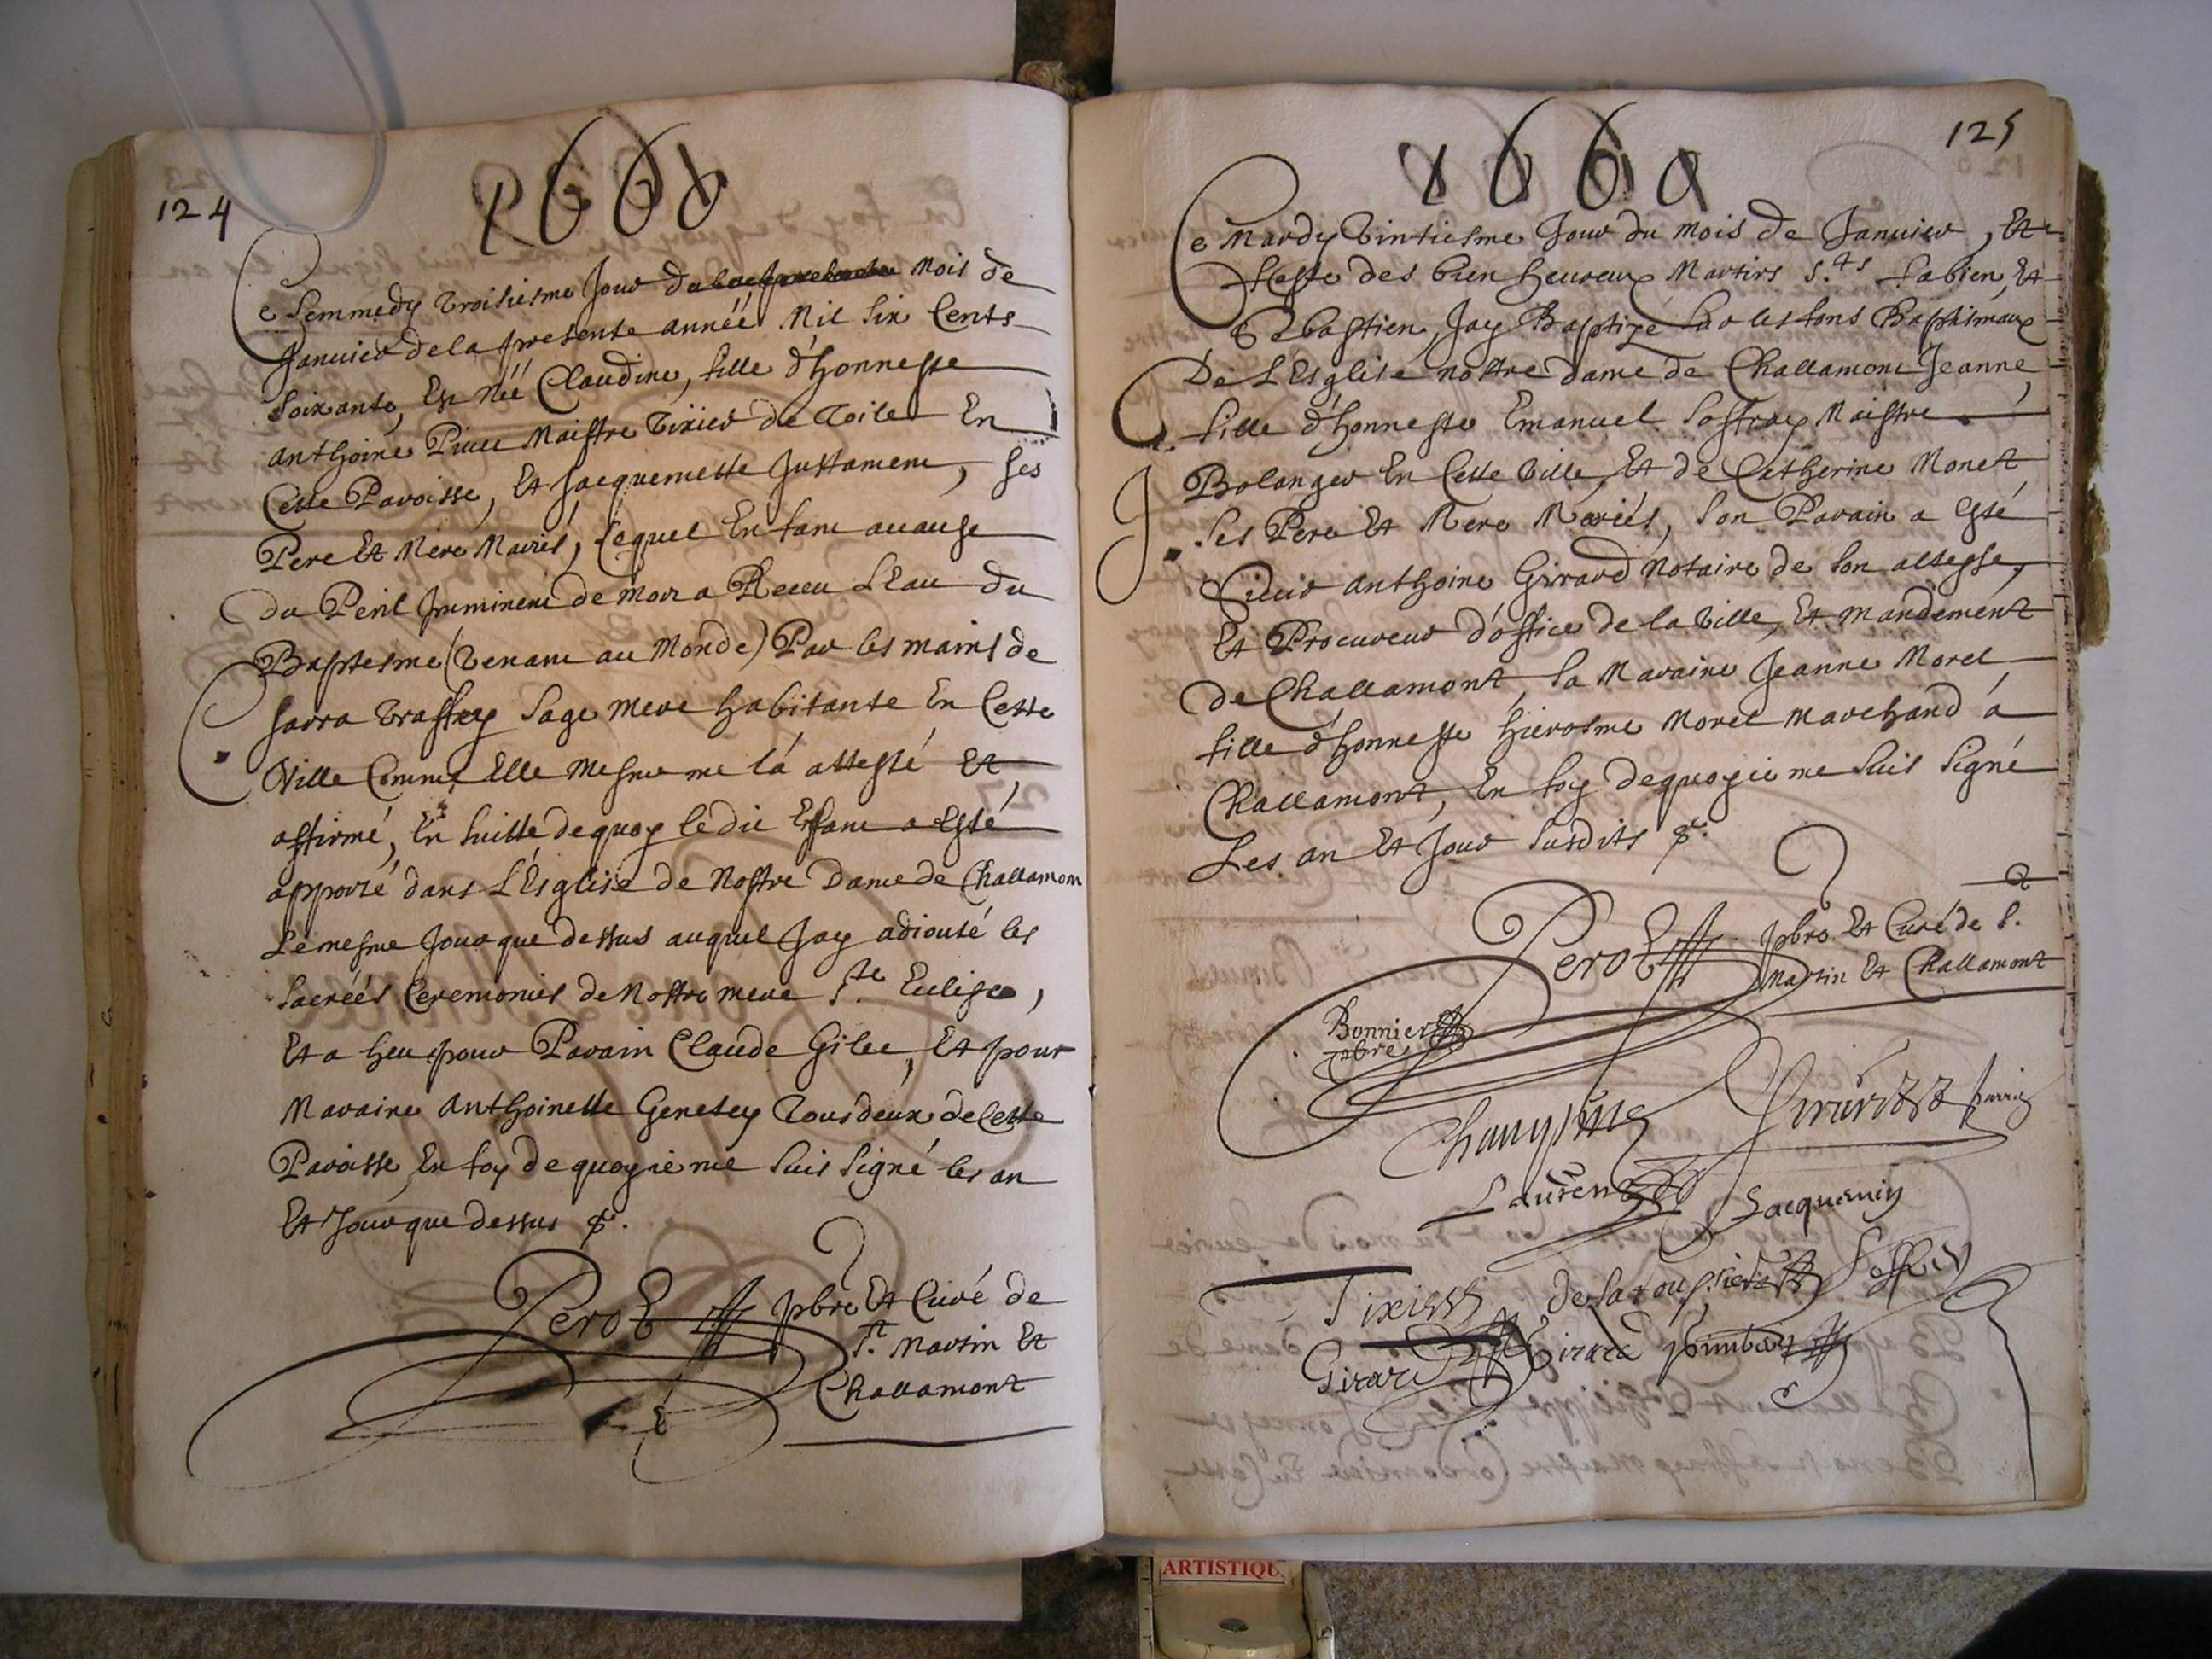 124
1660
Ce Semmedy troisiesme Jour du Mois de
Januier de la presente année Mil Six Cents
Soixante, Est Née Claudine, fille d'honneste
Anthoine Maistre Tixier de Toile En
Cette Paroisse, Et Jacquemette Justamont, ses
Pere Et Mere Mariés, lequel Enfant a cause
du Peril Imminent de Mort a Receu L'Eau du
Baptesme (venant au Monde) Par les mains de
Sarra Sage mere habitante En Cette
Ville Comme Elle Mesme me l'à attesté Et,
affirmé, En suitte dequoy le dit Enfant a Esté
apporté dans L'Esglise de Nostre Dame de Challamont
Le mesme Jour que dessus auquel Jay adiouté les
Sacréés Ceremonies de Nostre mere S.te Esclise,
Et a heu pour Parain Claude Et pour
Maraine Anthoinette Genetey Tous deux de Cette
Paroisse En foy de quoy ie me suis Signé les an
Et Jour que dessus &.
Perot pbre Et Curé de
S.t Martin Et
Challamont
125
1660
Ce Mardy Vintiesme Jour du Mois de Januier, Et
Feste des bien heureux Martirs S.ts Fabien, Et
Sebastien, Jay Baptizé sur les fons Baptismaux
De L'Esglise nostre dame de Challamont Jeanne,
fille d'honneste Emanuel Soffray Maistre
Bolanger En Cette Ville, Et de Catherine Monet
Ses Pere Et Mere Mariés, Son Parain a Esté
Sieur Anthoine Girard Notaire de Son altesse,
Et Procureur d'office de la Ville, Et Mandement
de Challamont, la Maraine Jeanne Morel
fille d'honneste hierosme Morel Marchand à
Challamont, En foy dequoy ie me suis Signé
Les an Et Jour susdits &.
Perot pbre Et Curé de S.
Martin Et Challamont
Bonnier
pbre
Girard
Laurent Jacquemin
Tixier
Girard Girard
ARTISTIQU